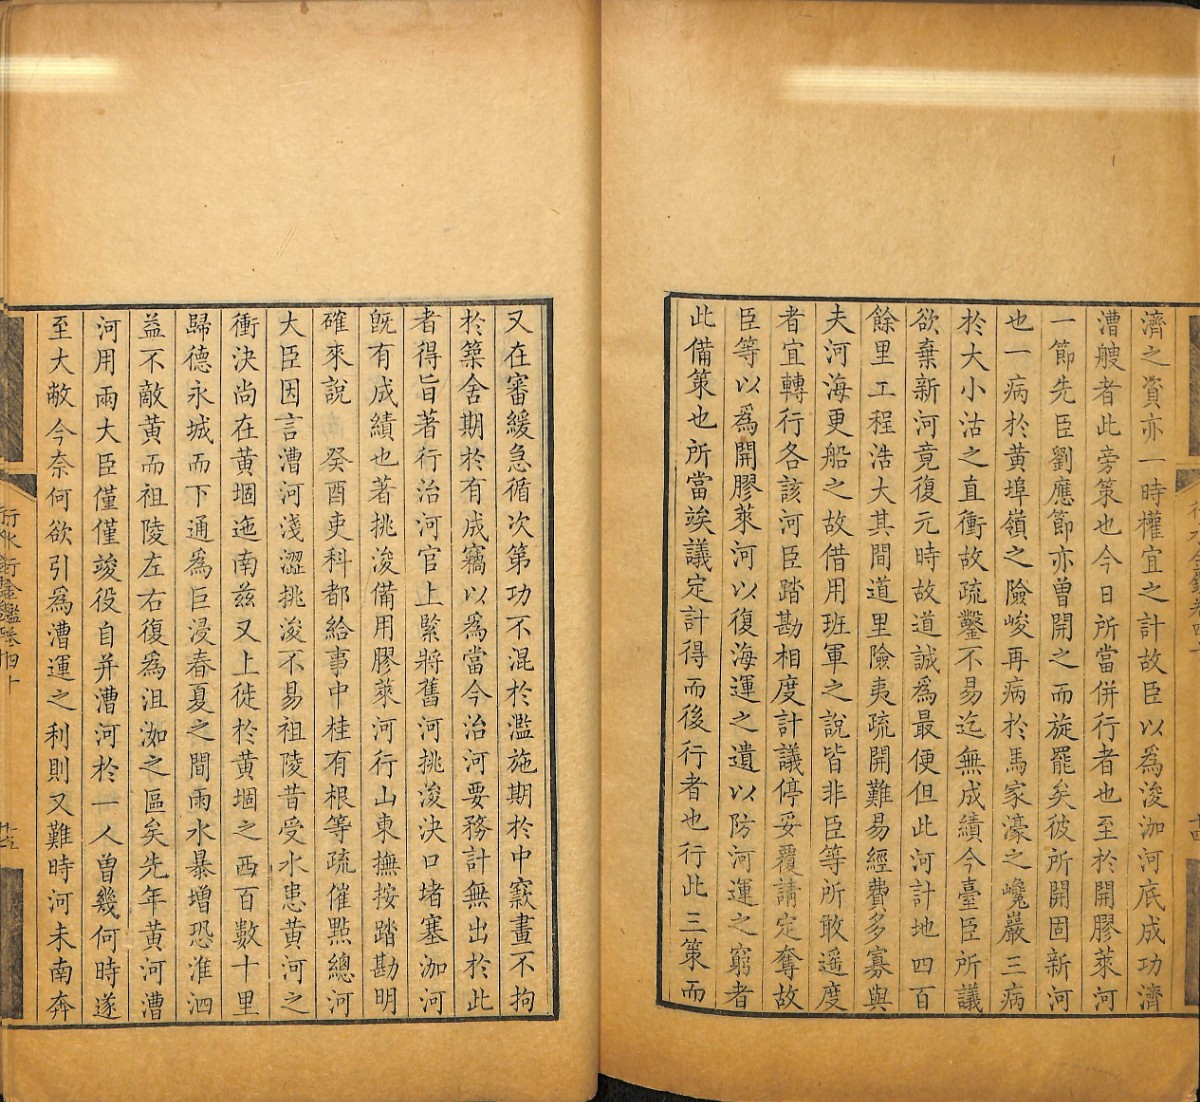 濟之資亦一時權宜之計故臣以爲浚泇河底成功濟
漕艘者此旁策也今日所當併行者也至於開膠萊河
一節先臣劉應節亦曾開之而旋罷矣彼所開固新河
也一病於黃埠嶺之險峻再病於馬家濠之巉巖三病
於大小沽之直衝故疏鑿不易迄無成績今臺臣所議
欲棄新河竟復元時故道誠爲最便但此河計地四百
餘里工程浩大其間道里險夷疏開難易經費多寡與
夫河海更船之故借用班軍之說皆非臣等所敢遥度
者宜轉行各該河臣踏勘相度計議停妥覆請定奪故
臣等以爲開膠萊河以復海運之遺以防河運之窮者
此備策也所當竢議定計得而後行者也行此三策而
又在審緩急循次第功不混於濫施期於中窾畫不拘
於築舍期於有成竊以爲當今治河要務計無出於此
者得旨著行治河官上緊將舊河挑浚決口堵塞泇河
旣有成績也著挑浚備用膠萊河行山東撫按踏勘明
確來說 癸酉吏科都給事中桂有根等疏催點總河
大臣因言漕河淺澀挑浚不易祖陵昔受水患黃河之
衝決尚在黃堌迤南兹又上徙於黃堌之西百數十里
歸德永城而下通爲巨浸春夏之間雨水暴增恐淮泗
益不敵黃而祖陵左右復爲沮洳之區矣先年黃河漕
河用兩大臣僅僅竣役自并漕河於一人曾幾何時遂
至大敝今奈何欲引爲漕運之利則又難時河未南奔
行水金鑑卷四十